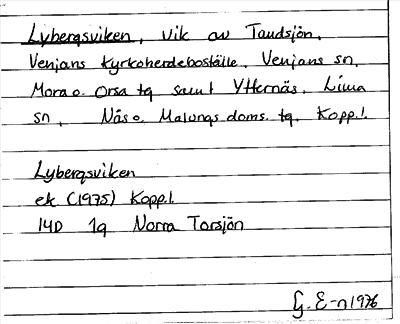 Lybergsviken, vik av Tandsjön,
Venjans kyrkoherdeboställe, Venjans sn,
Mora o. Orsa tg samt Ytternäs, Lima
sn, Nås o. Malungs doms. tg. Kopp.l.
Lybergsviken
ek (1975) Kopp.l.
14D 1g Norra Torsjön
G. E-n 1976